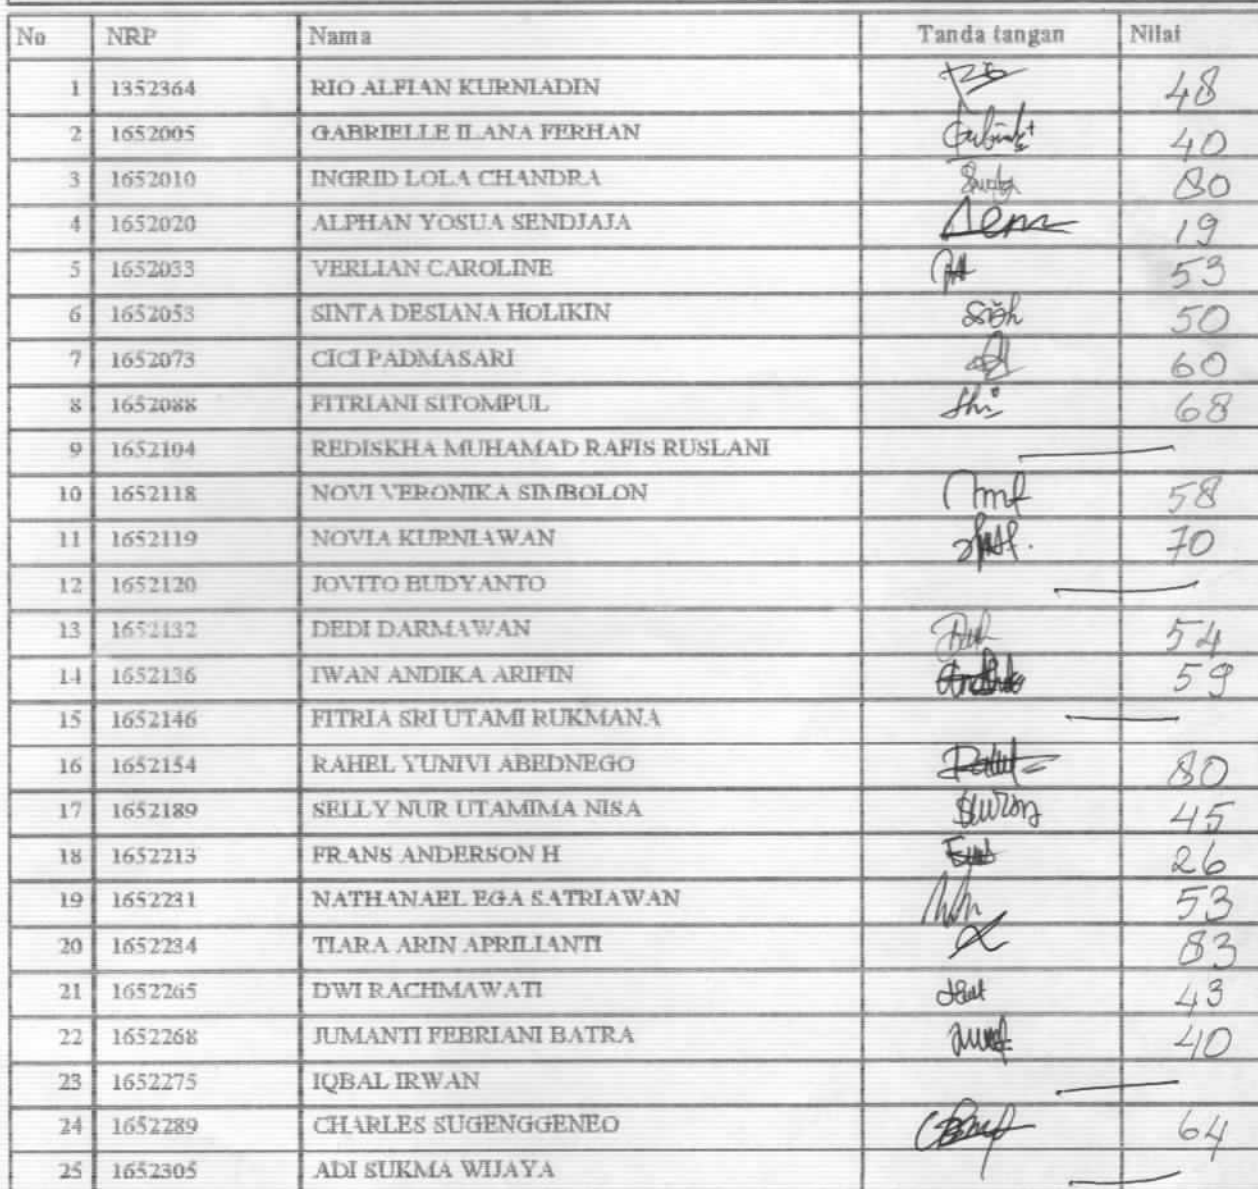 No NRP Nama Tanda tangan Nilai
1 1352364 RIO ALFIAN KURNIADIN 48
2 1652005 GABRIELLE ILANA FERHAN 40
3 1652010 INGRID LOLA CHANDRA 80
4 1652020 ALPHAN YOSUA SENDJAJA 19
5 1652033 VERLIAN CAROLINE 53
6 1652053 SINTA DESIANA HOLIKIN 50
7 1652073 CICI PADMASARI 60
8 1652088 FITRIANI SITOMPUL 68
9 1652104 REDISKHA MUHAMAD RAFIS RUSLANI
10 1652118 NOVI VERONIKA SIMBOLON 58
11 1652119 NOVIA KURNIAWAN 70
12 1652120 JOVITO BUDYANTO
13 1652132 DEDI DARMAWAN 54
14 1652136 IWAN ANDIKA ARIFIN 59
15 1652146 FITRIA SRI UTAMI RUKMANA
16 1652154 RAHEL YUNIVI ABEDNEGO 80
17 1652189 SELLY NUR UTAMIMA NISA 45
18 1652213 FRANS ANDERSON H 26
19 1652231 NATHANAEL EGA SATRIAWAN 53
20 1652234 TIARA ARIN APRILIANTI 83
21 1652265 DWI RACHMAWATI 43
22 1652268 JUMANTI FEBRIANI BATRA 40
23 1652275 IQBAL IRWAN
24 1652289 CHARLES SUGENGGENEO 64
25 1652305 ADI SUKMA WIJAYA